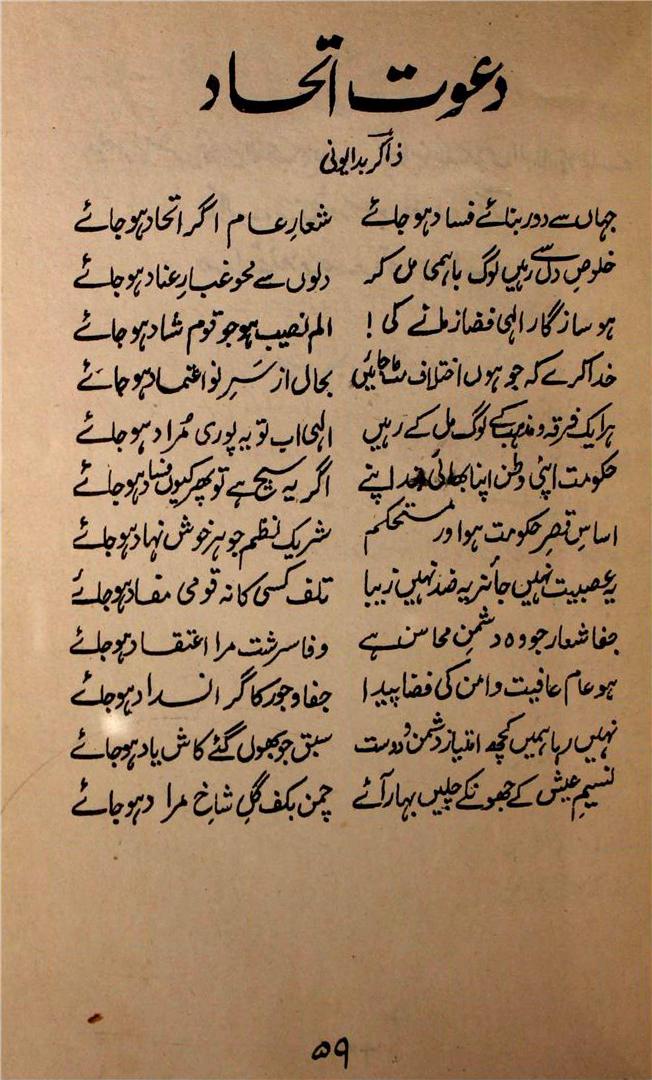 دعوت اتحاد
ذاکر بدایونی
جہاں سے دور بنائے فساد ہو جائے شعارِ عام اگر اتحاد ہو جائے
خلوصِ دل سے رہیں لوگ باہمی مل کر دلوں سے محو غبارِ عناد ہو جائے
ہو سازگار الٰہی فضا زمانے کی ! الم نصیب ہو جو قوم شاد ہو جائے
خدا کرے کہ جو ہوں اختلاف مٹ جائیں بحال از سَرِ نو اعتماد ہو جائے
ہر ایک فرقہ و مذہب کے لوگ مل کے رہیں الٰہی اب تو یہ پوری مُراد ہو جائے
حکومت اپنی وطن اپنا بھائی اپنے اگر یہ سچ ہے تو پھر کیوں فساد ہو جائے
اساسِ قصرِ حکومت ہو اور مستحکم شریک نظم جو ہر خوش نہاد ہو جائے
یہ عصبیت نہیں جائز یہ ضد نہیں زیبا تلف کسی کا نہ قومی مفاد ہو جائے
جفا شعار جو وہ دشمنِ محاسن ہے وفا سرشت مرا اعتقاد ہو جائے
ہو عام عافیت و امن کی فضا پیدا جفا و جور کا گر انسداد ہو جائے
نہیں رہا ہمیں کچھ امتیاز دشمن و دوست سبق جو بھول گئے کاش یاد ہو جائے
نسیمِ عیش کے جھونکے چلیں بہار آئے چمن بکف گلِ شاخِ مراد ہو جائے
۵۹